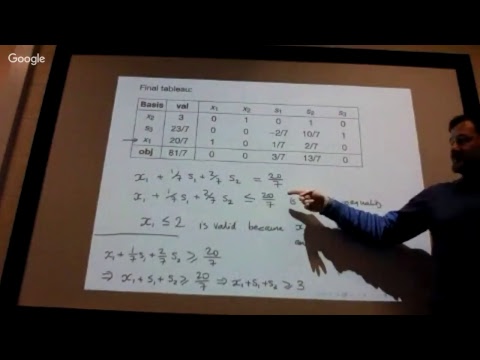 Google
Final tableau:
Basis val x₁ x₂ s₁ s₂ s₃
x₂ 3 0 1 0 1 0
s₃ 23/7 0 0 -2/7 10/7 1
→ x₁ 20/7 1 0 1/7 2/7 0
obj 81/7 0 0 3/7 13/7 0
x₁ + 1/7 s₁ + 2/7 s₂ = 20/7
x₁ + 1/7 s₁ + 2/7 s₂ ≤ 20/7
x₁ ≤ 2 is valid because x
x₁ + 1/7 s₁ + 2/7 s₂ ≥ 20/7
⇒ x₁ + s₁ + s₂ ≥ 20/7 ⇒ x₁ + s₁ + s₂ ≥ 3